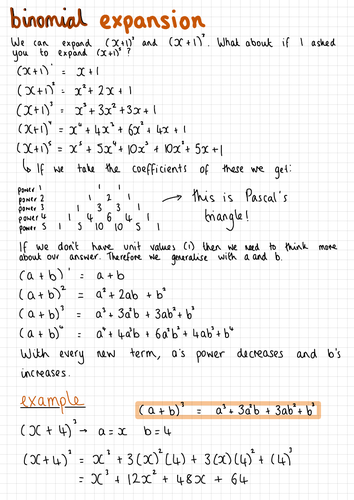 binomial expansion
We can expand (x+1)² and (x+1)³. What about if I asked
you to expand (x+1)⁵ ?
(x+1)¹ = x+1
(x+1)² = x²+2x+1
(x+1)³ = x³+3x²+3x+1
(x+1)⁴ = x⁴+4x³+6x²+4x+1
(x+1)⁵ = x⁵+5x⁴+10x³+10x²+5x+1
↳ If we take the coefficients of these we get:
power 1 1 1
power 2 1 2 1
power 3 1 3 3 1
power 4 1 4 6 4 1
power 5 1 5 10 10 5 1
→ this is Pascal's
triangle!
If we don't have unit values (1) then we need to think more
about our answer. Therefore we generalise with a and b.
(a+b)¹ = a+b
(a+b)² = a²+2ab+b²
(a+b)³ = a³+3a²b+3ab²+b³
(a+b)⁴ = a⁴+4a³b+6a²b²+4ab³+b⁴
With every new term, a's power decreases and b's
increases.
example
(a+b)³ = a³+3a²b+3ab²+b³
(x+4)³ → a=x b=4
(x+4)³ = x³+3(x)²(4)+3(x)(4)²+(4)³
= x³+12x²+48x+64